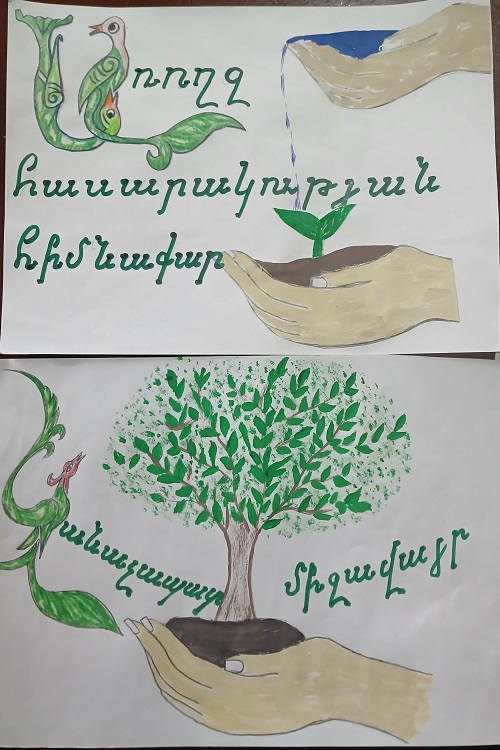 Առողջ
հասարակության
հիմնաքար
Կանաչապատ միջավայր